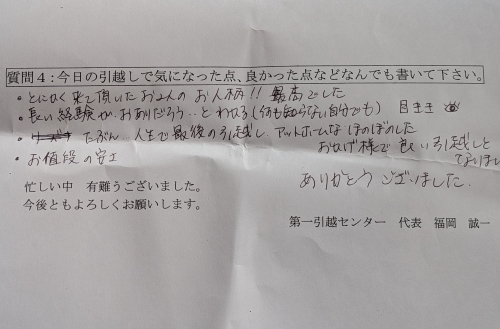 質問4:今日の引越しで気になった点、良かった点などなんでも書いて下さい。
・とにかく来て頂いたお2人のお人柄!!最高でした
・長い経験がおありだろう..とわかる(何も知らない自分でも) 目きき
・たぶん..人生で最後の引越し、アットホームなほのぼのした
おかげ様で良い引越しと
なりました
・お値段の安さ
ありがとうございました。
忙しい中 有難うございました。
今後ともよろしくお願いします。
第一引越センター 代表 福岡 誠一